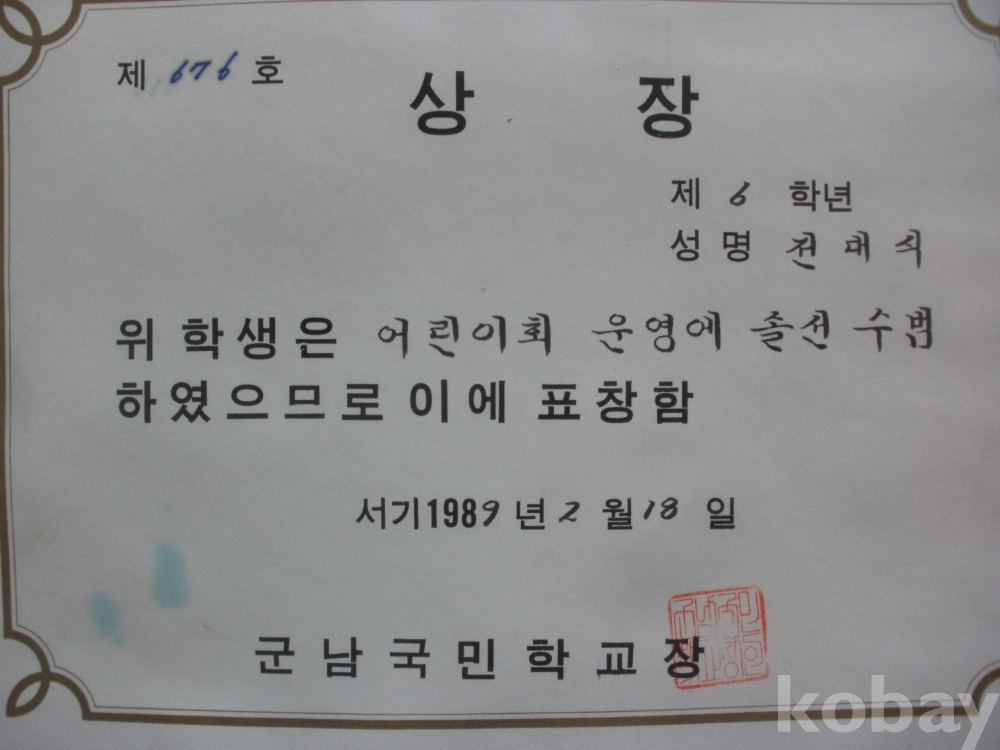 제 676 호
상 장
제 6 학년
성 명 전 대 식
위 학생은 어린이회 운영에 솔선 수범
하였으므로 이에 표창함
서기1989년 2월 18일
군남국민학교장
kobay